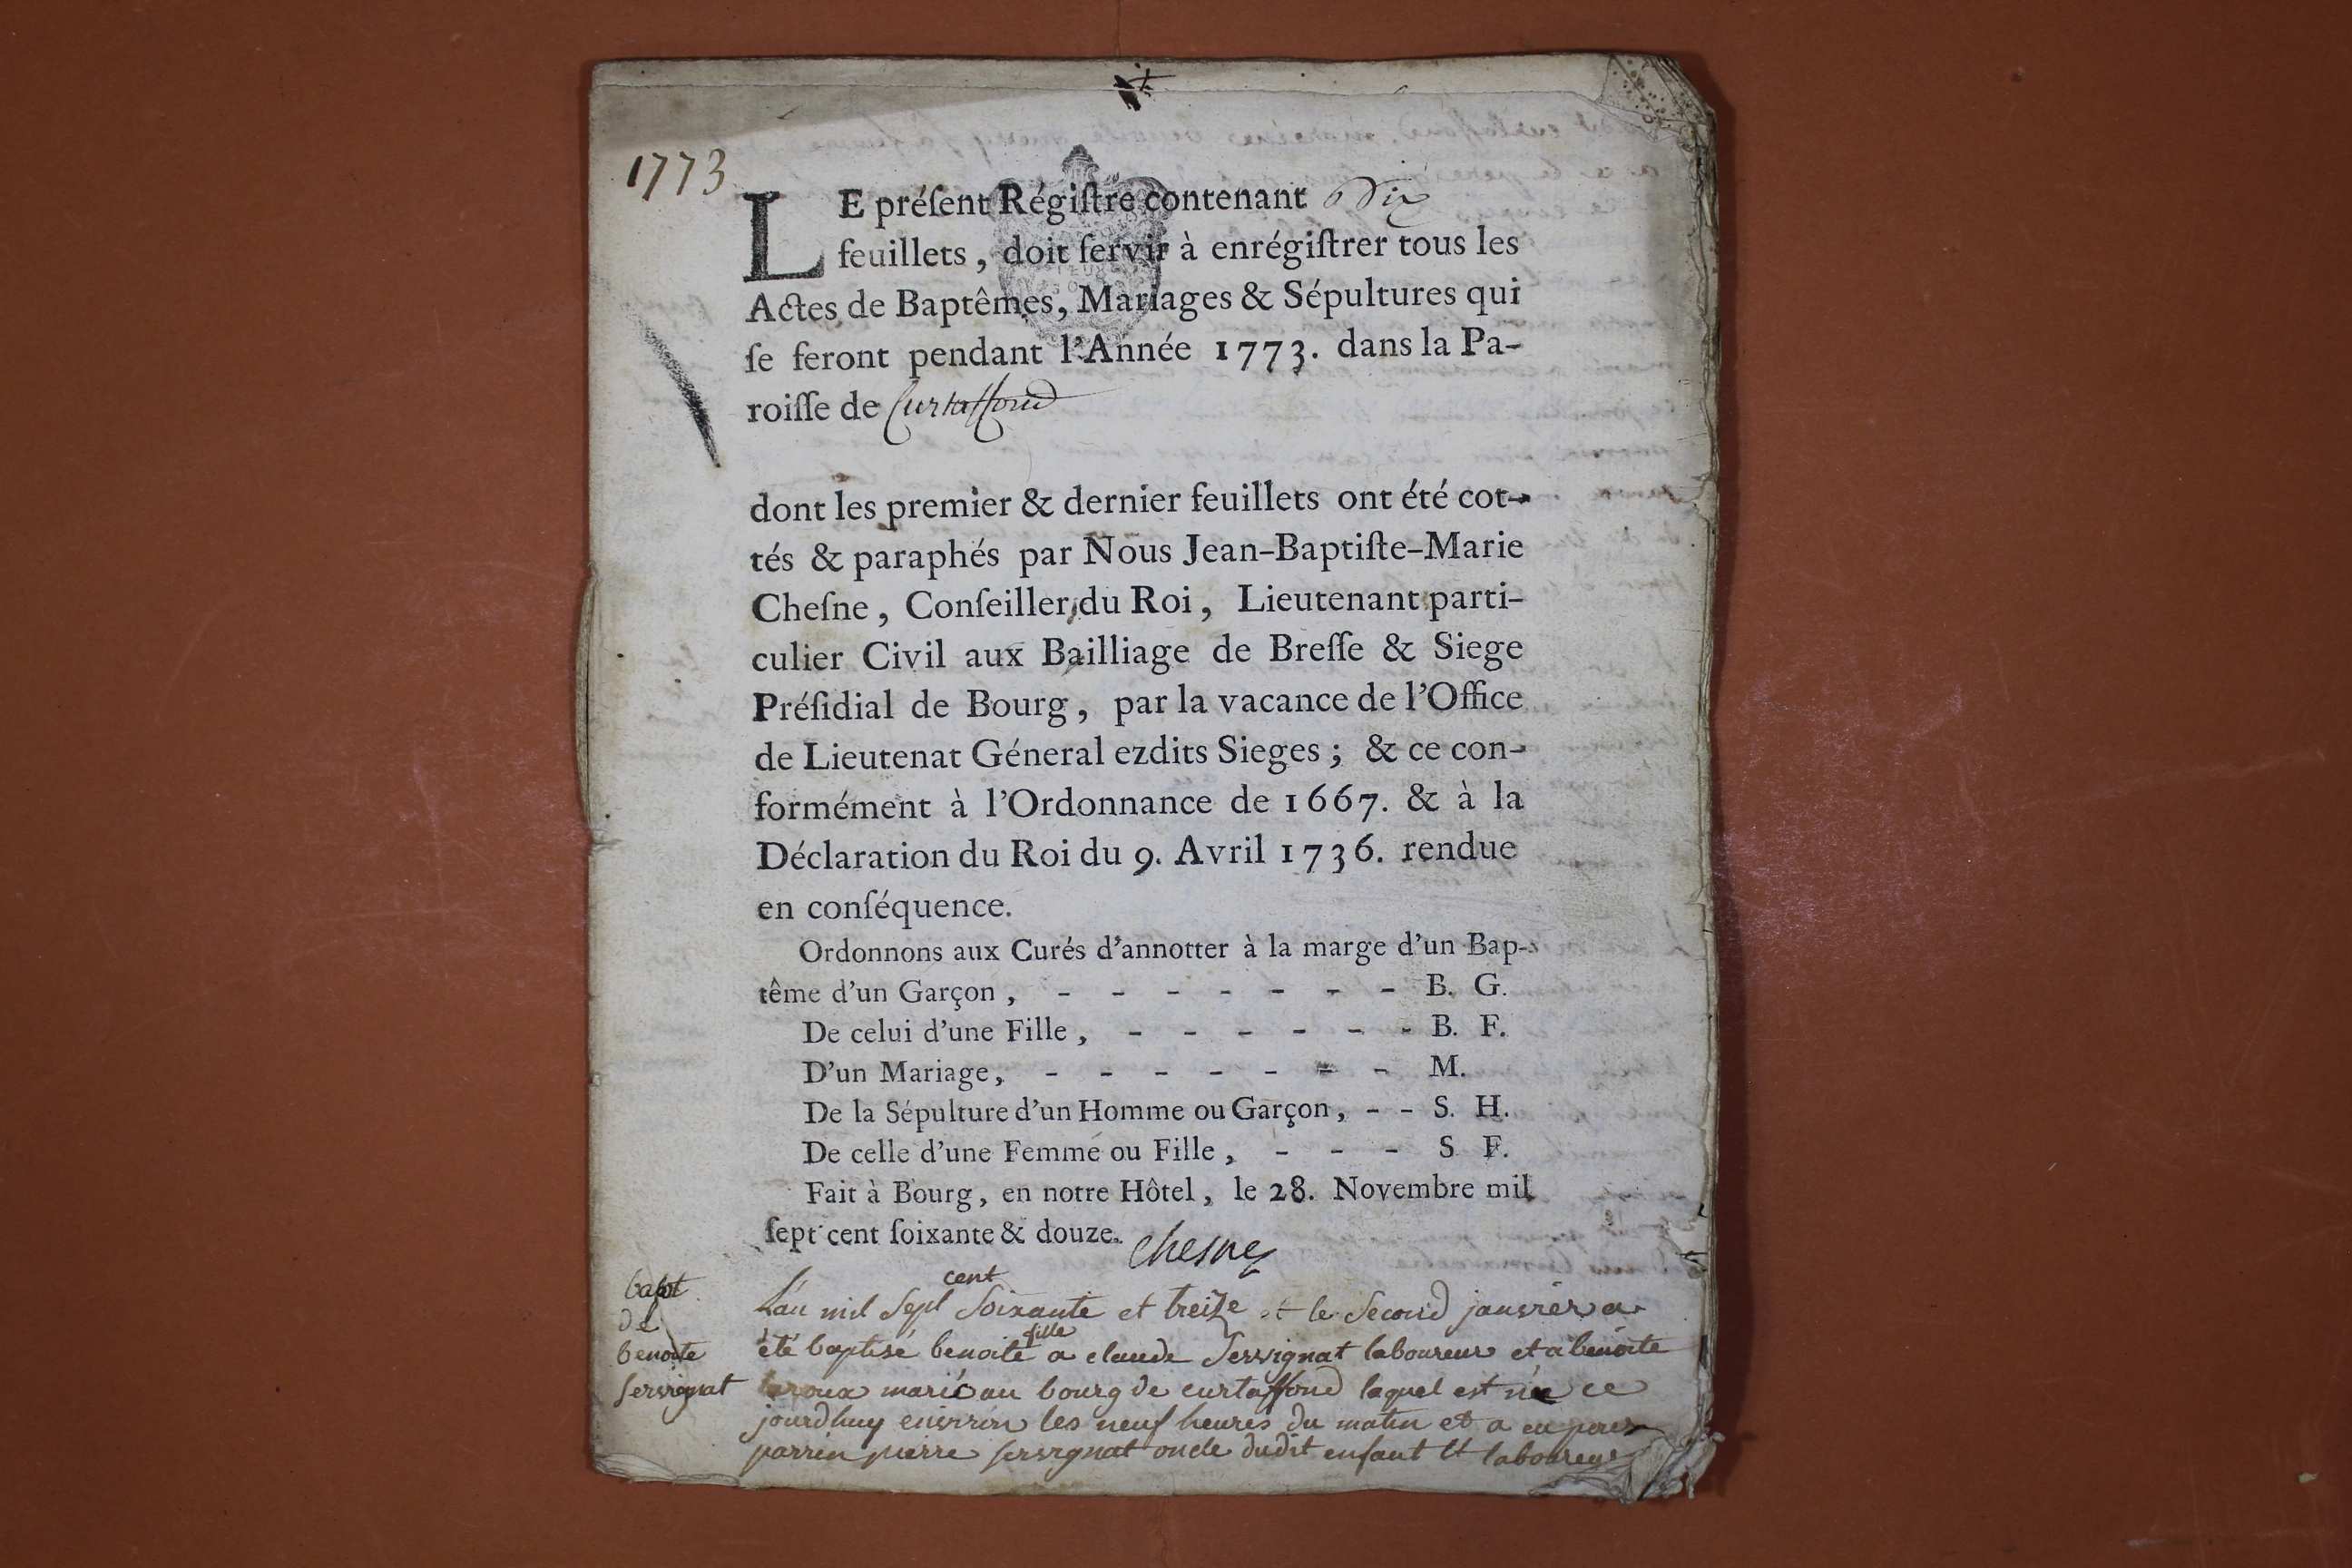 1773
LE préſent Régiſtre contenant Dix
feuillets, doit ſervir à enrégiſtrer tous les
Actes de Baptêmes, Mariages & Sépultures qui
ſe feront pendant l'Année 1773. dans la Pa-
roiſſe de Curtaffond
dont les premier & dernier feuillets ont été cot-
tés & paraphés par Nous Jean-Baptiſte-Marie
Cheſne, Conſeiller du Roi, Lieutenant parti-
culier Civil aux Bailliage de Breſſe & Siege
Préſidial de Bourg, par la vacance de l'Office
de Lieutenat Géneral ezdits Sieges; & ce con-
formément à l'Ordonnance de 1667. & à la
Déclaration du Roi du 9. Avril 1736. rendue
en conſéquence.
Ordonnons aux Curés d'annotter à la marge d'un Bap-
tême d'un Garçon, - - - - - - - B. G.
De celui d'une Fille, - - - - - - B. F.
D'un Mariage, - - - - - - - M.
De la Sépulture d'un Homme ou Garçon, - - S. H.
De celle d'une Femme ou Fille, - - - S F.
Fait à Bourg, en notre Hôtel, le 28. Novembre mil
ſept cent ſoixante & douze.
chesne
bapt
de
benoite
servignat
L'an mil Sept cent Soixante et treize et le Second janvier a
été baptisé benoite fille a claude Servignat laboureur et a benoite
marié au bourg de curtaffond laquel est née ce
jourdhuy environ les neuf heures du matin et a eu pour
parrin pierre servignat oncle dudit enfant et laboureur